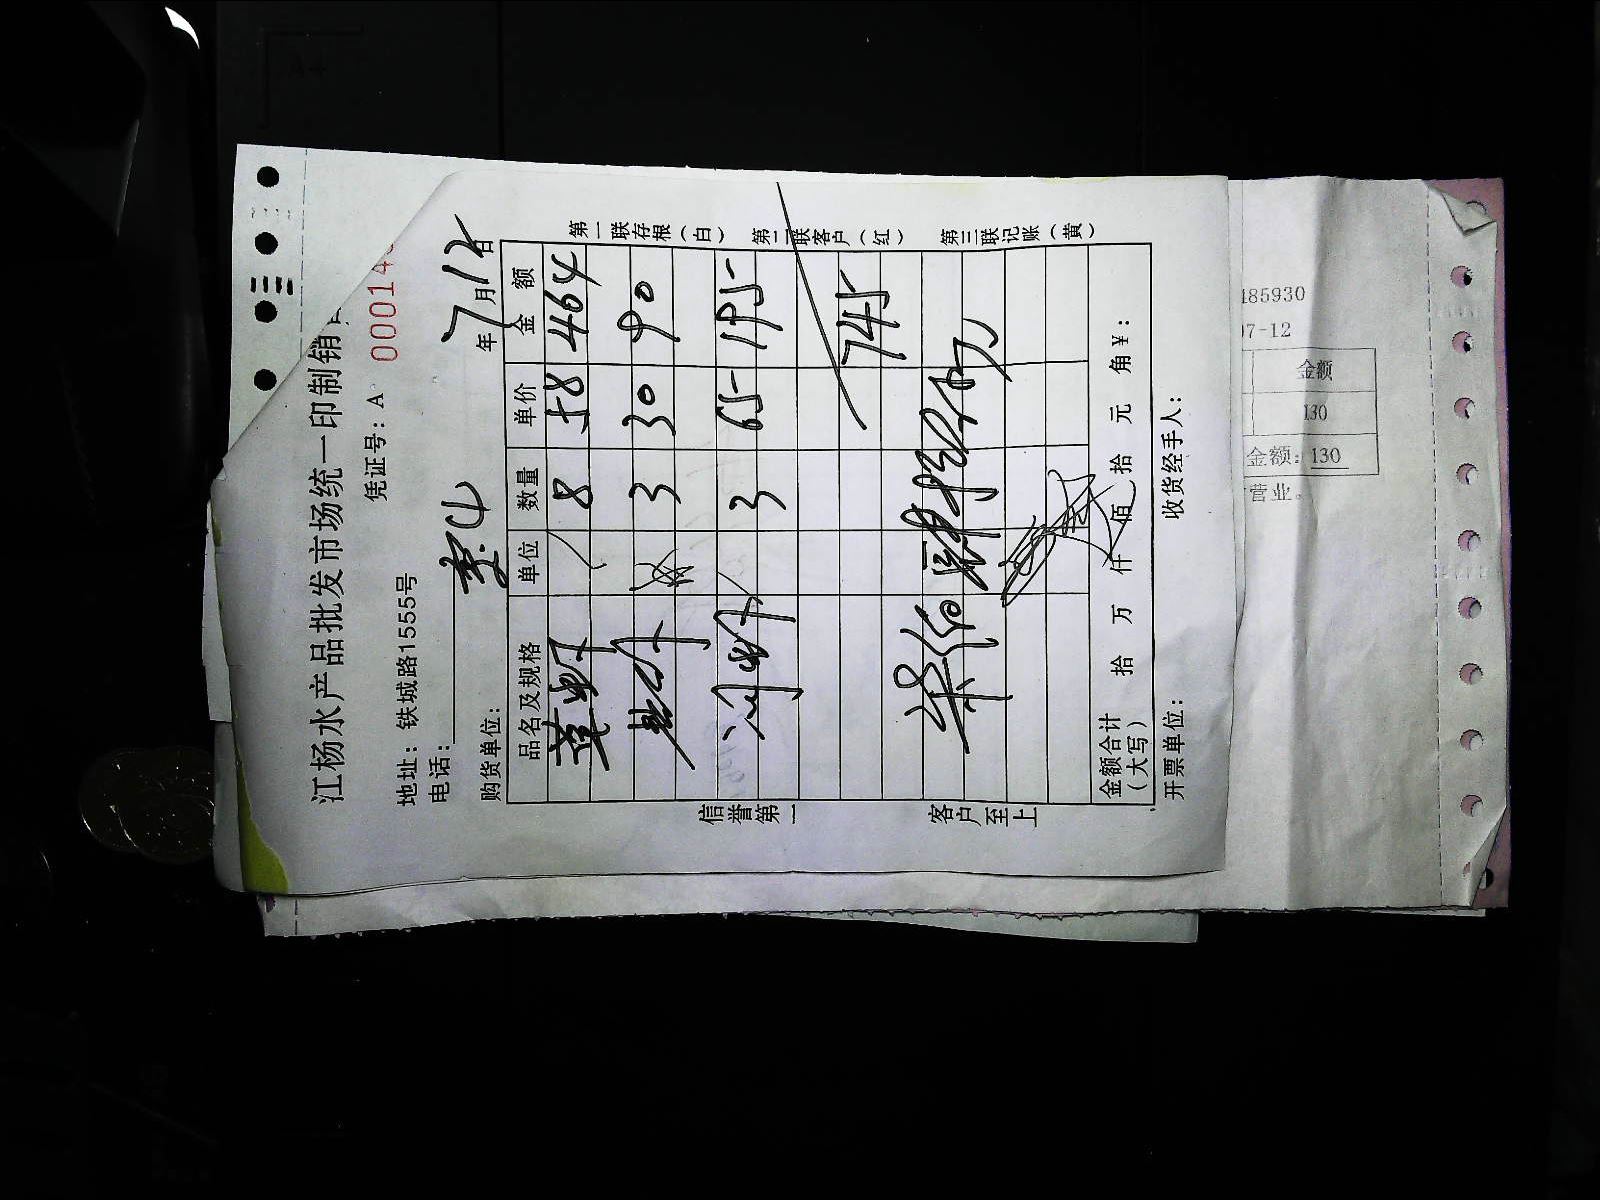 江杨水产品批发市场统一印制销
凭证号：A 00014
地址：铁城路1555号
电话：
购货单位：
年 7月12日
品名及规格 单位 数量 单价 金额
8 58 464
3 30 90
3 65 195
745
金额合计（大写） 拾 万 仟 佰 拾 元 角 ¥：
开票单位： 收货经手人：
信誉第一 客户至上
第一联存根（白） 第二联客户（红） 第三联记账（黄）
485930
07-12
金额
130
金额：130
营业。